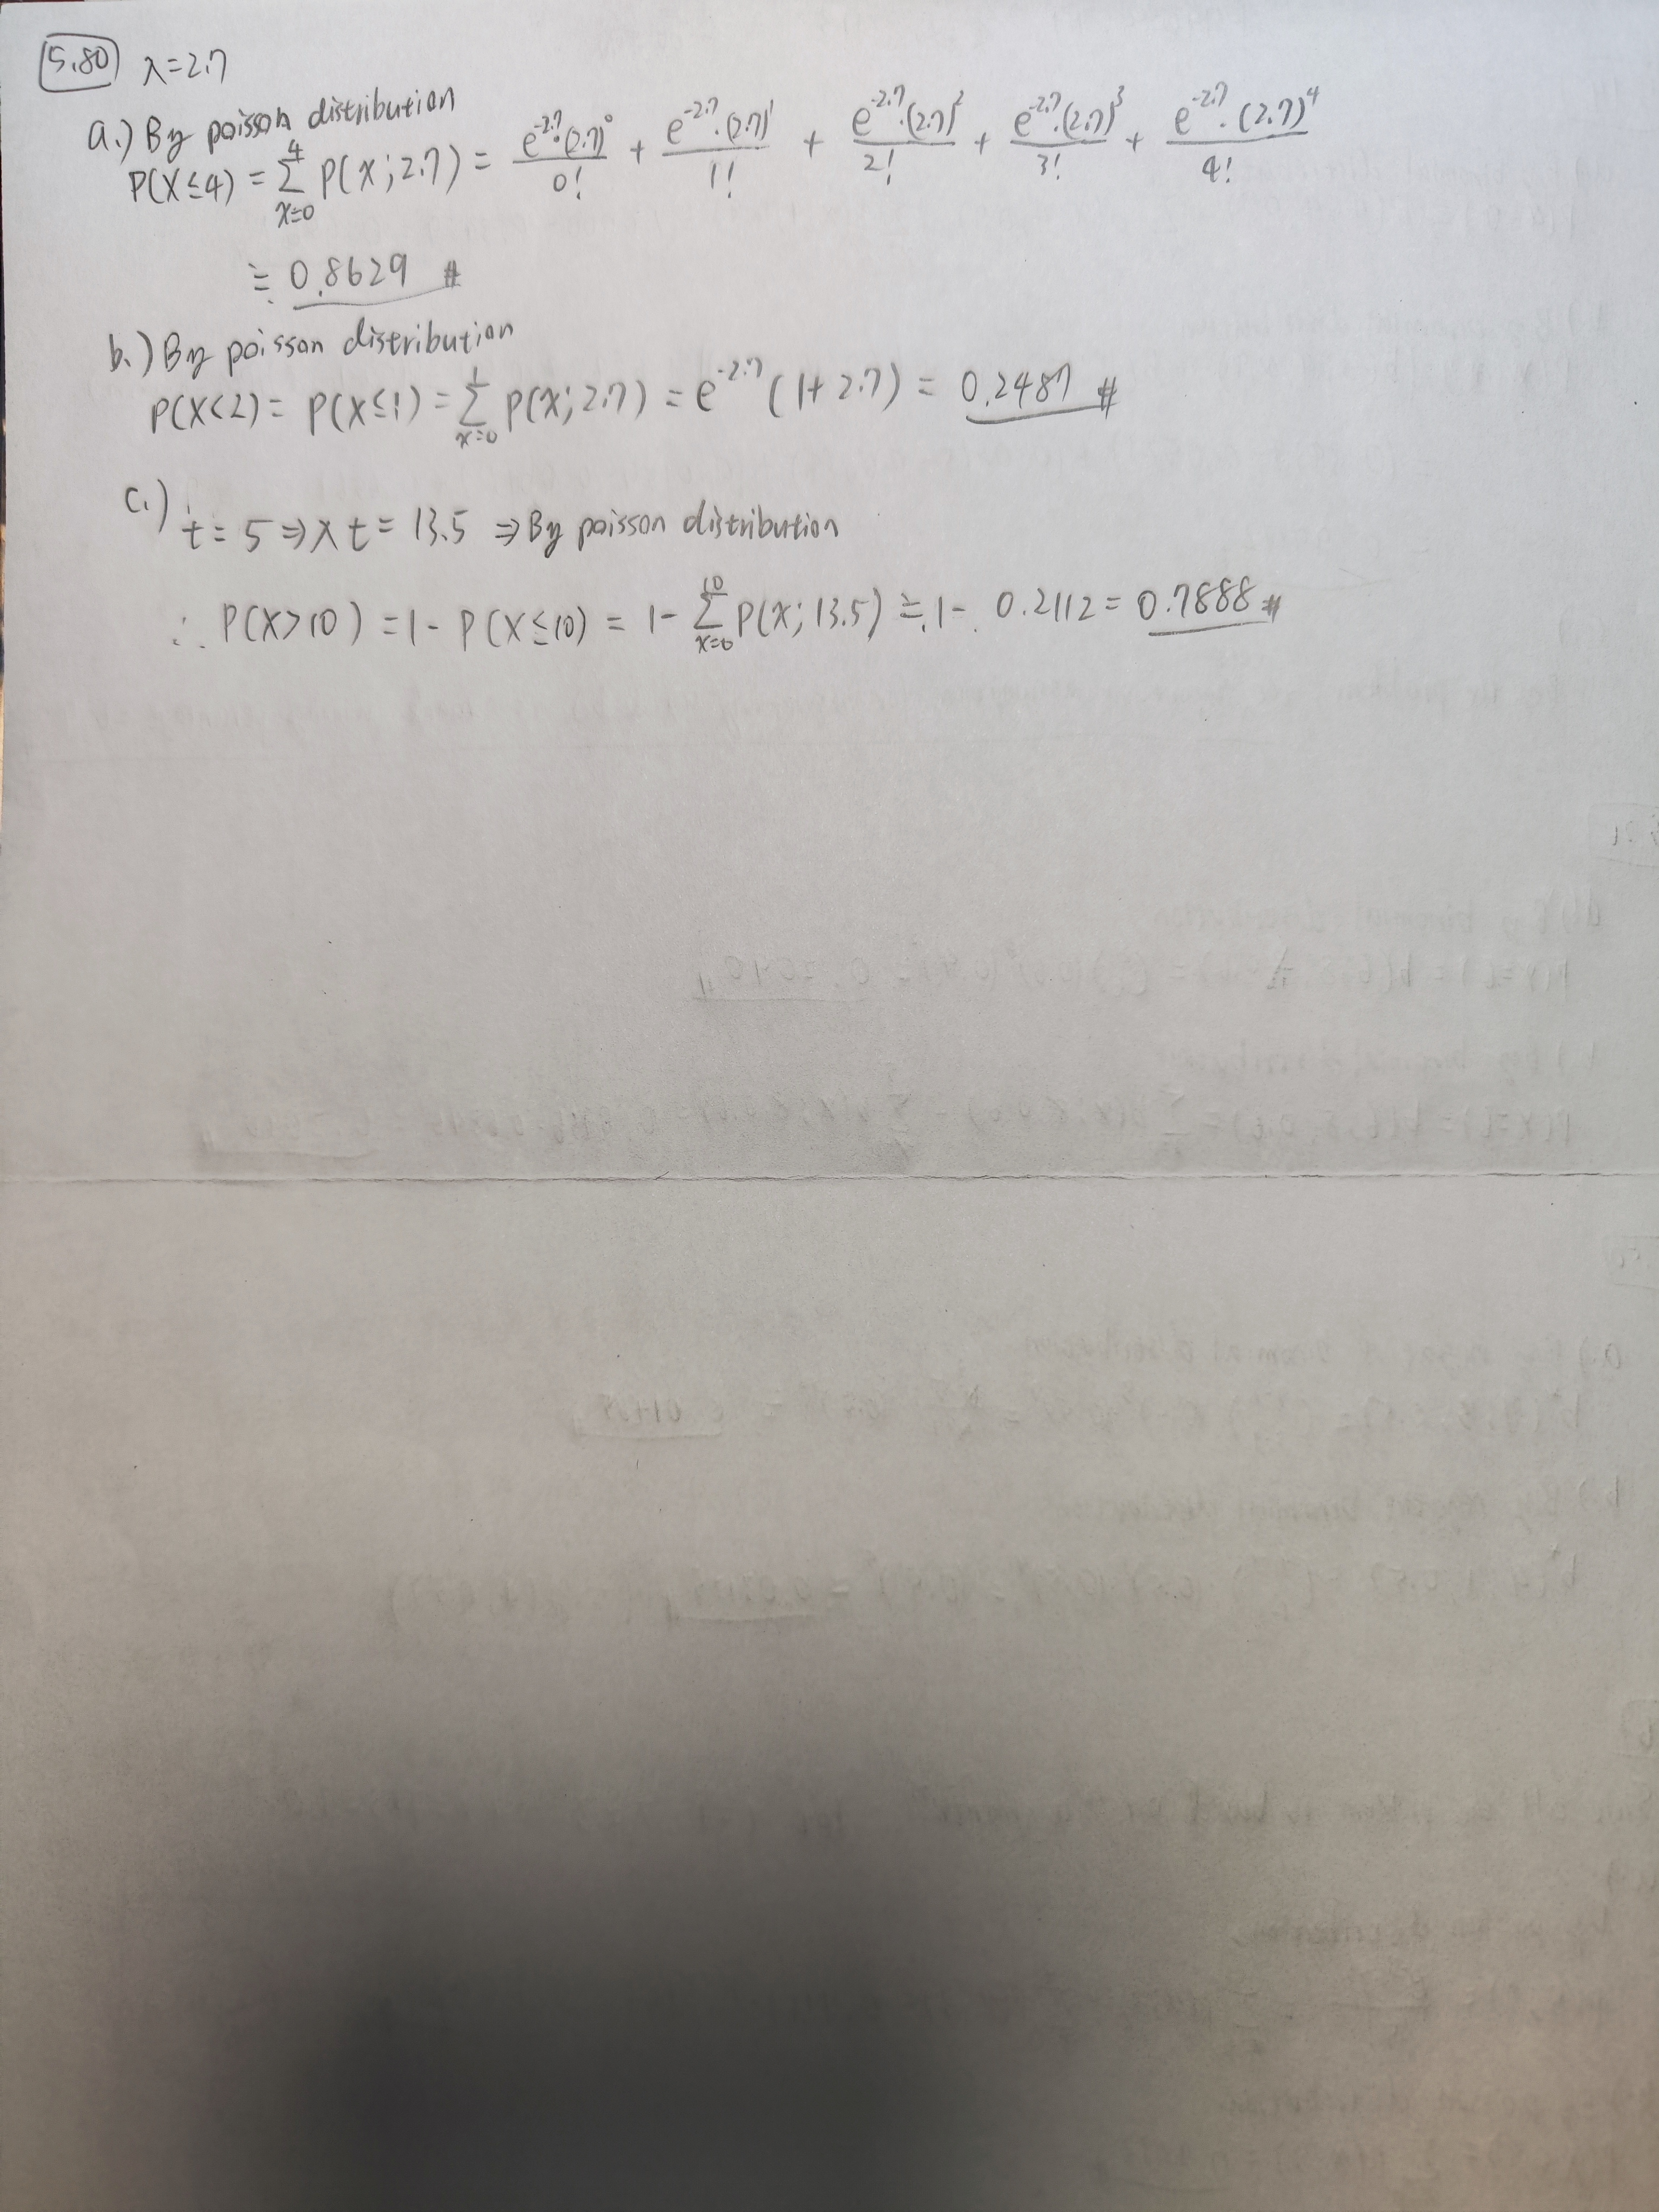 5.80 λ=2.7
a.) By poisson distribution
P(X≤4) = \sum_{x=0}^{4} P(x;2.7) = \frac{e^{-2.7}·(2.7)^0}{0!} + \frac{e^{-2.7}·(2.7)^1}{1!} + \frac{e^{-2.7}·(2.7)^2}{2!} + \frac{e^{-2.7}·(2.7)^3}{3!} + \frac{e^{-2.7}·(2.7)^4}{4!}
≒ 0.8629 #
b.) By poisson distribution
P(X<2) = P(X≤1) = \sum_{x=0}^{1} P(x;2.7) = e^{-2.7} (1+2.7) = 0.2487 #
c.) t = 5 ⇒ λt = 13.5 ⇒ By poisson distribution
∴ P(X>10) = 1 - P(X≤10) = 1 - \sum_{x=0}^{10} P(x;13.5) ≒ 1 - 0.2112 = 0.7888 #